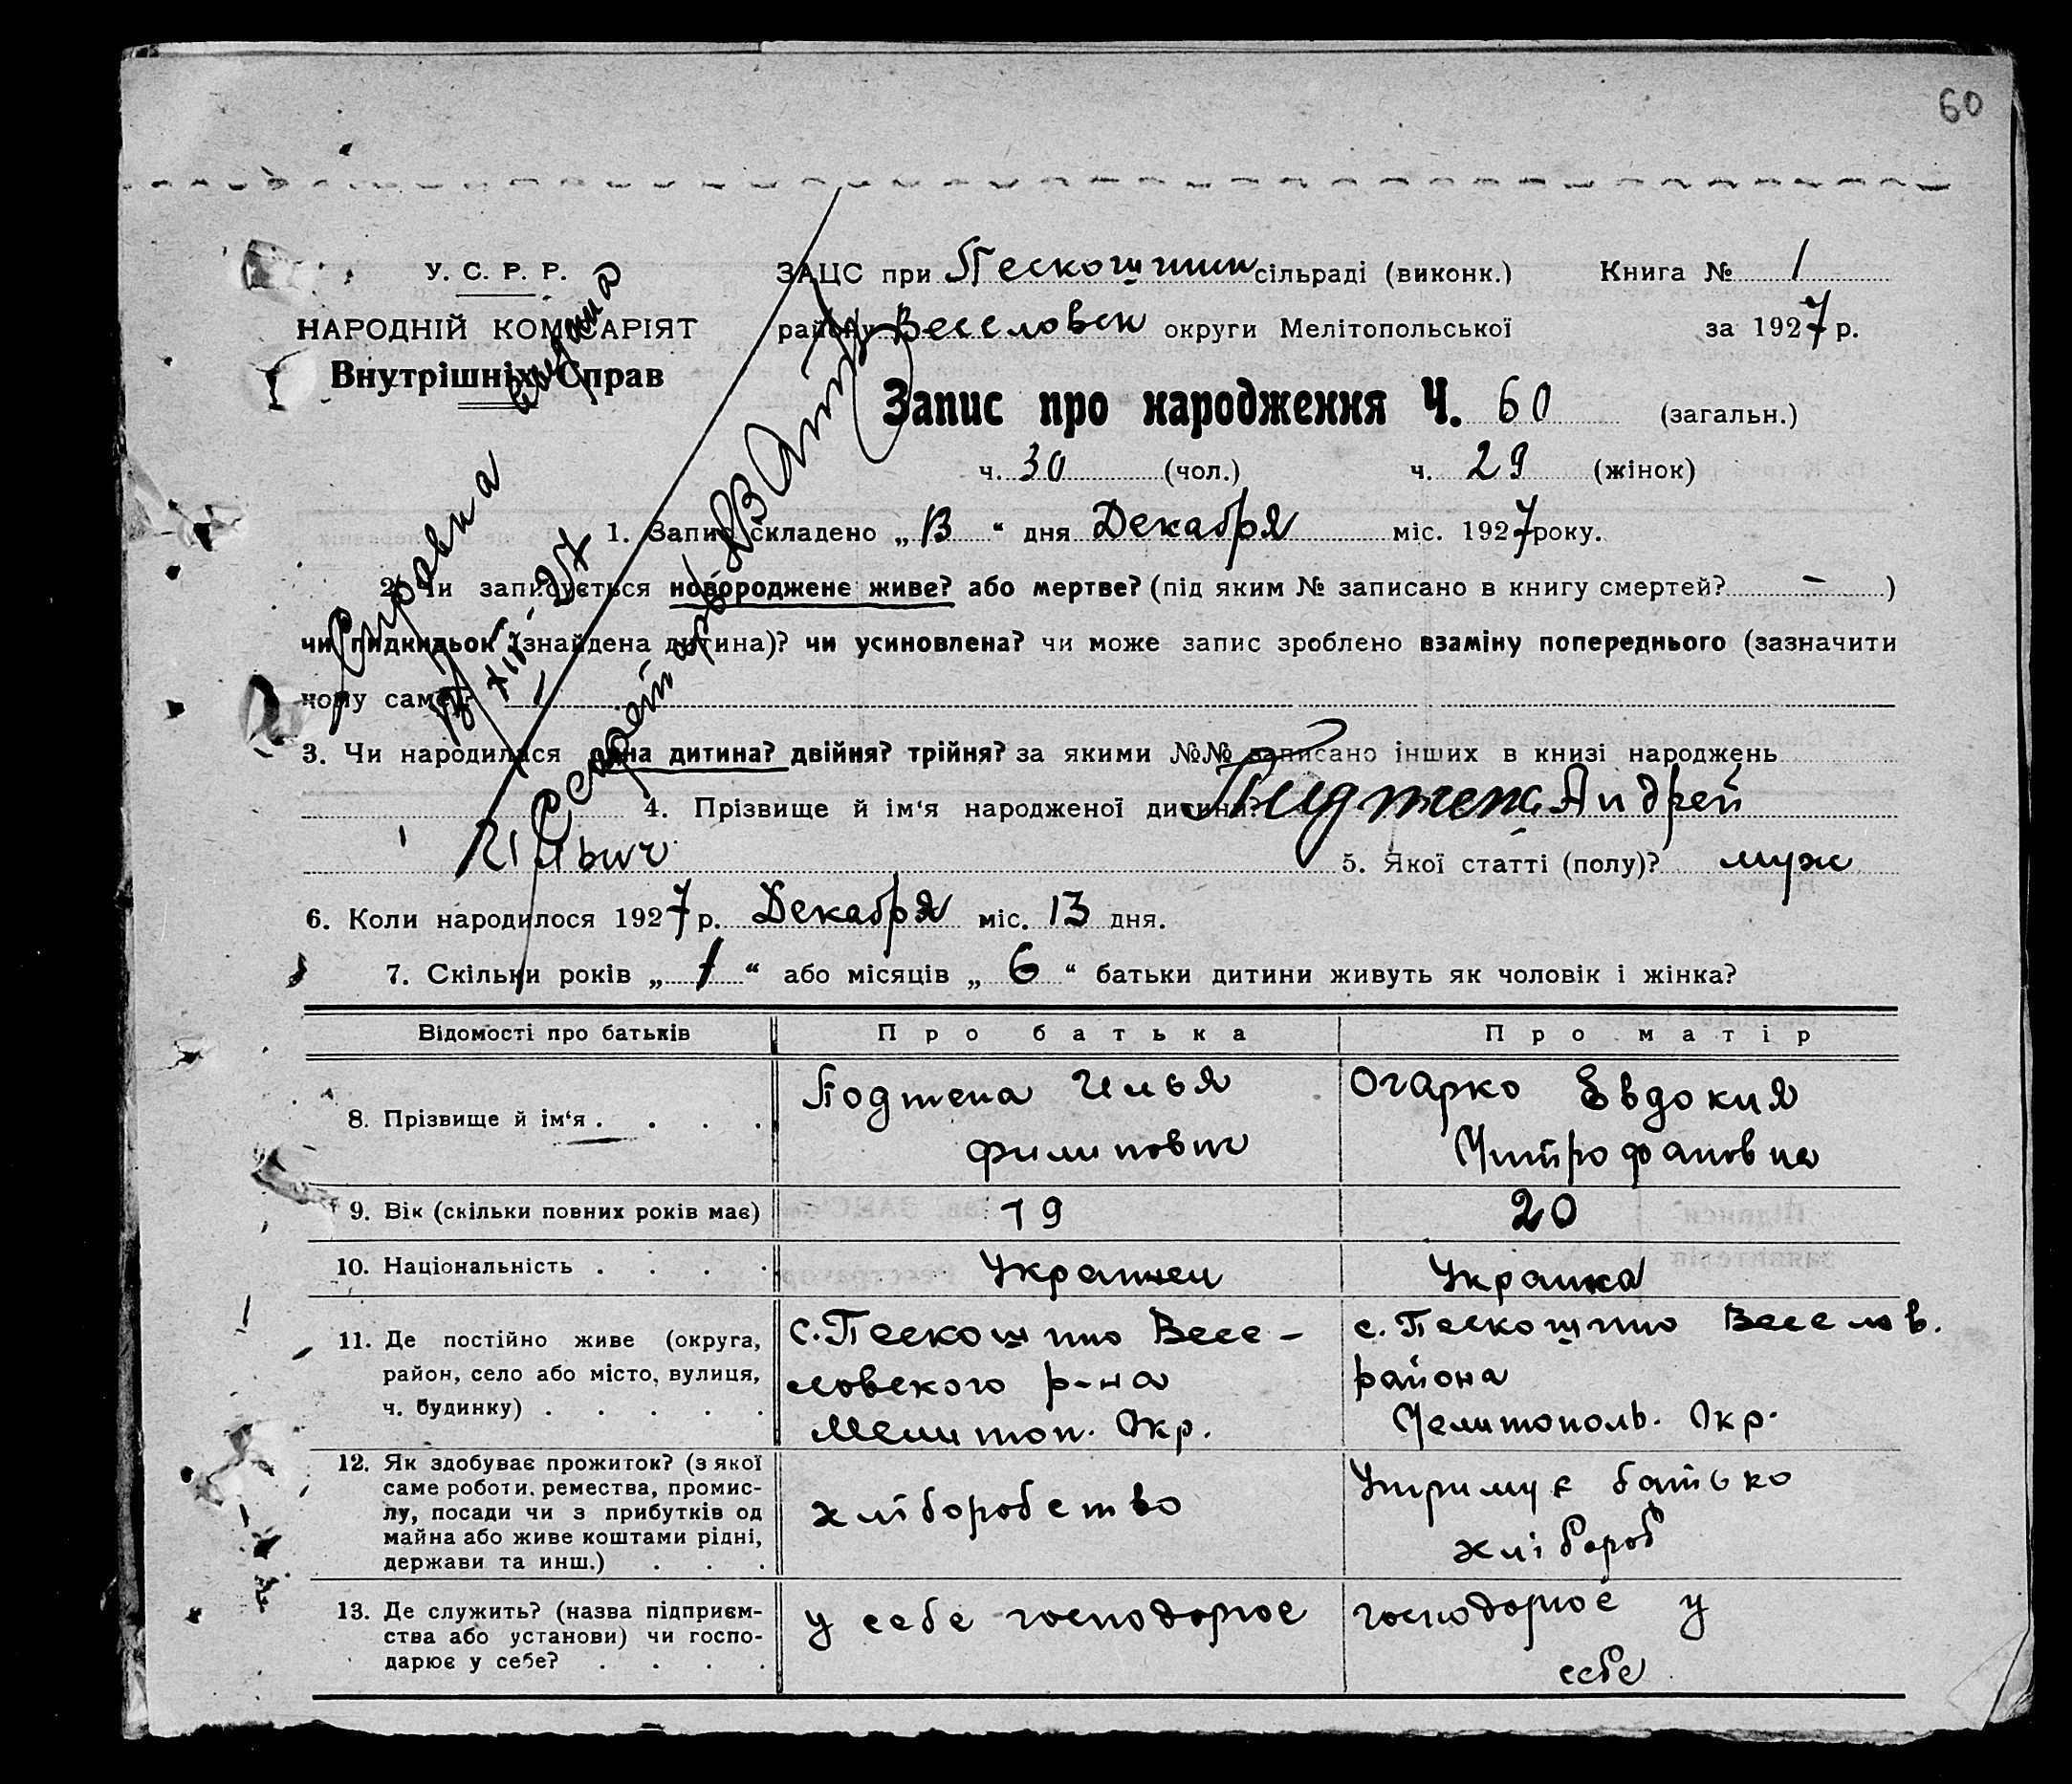 60
У. С. Р. Р.
НАРОДНІЙ КОМІСАРІЯТ
Внутрішніх Справ
ЗАЦС при Пескошинн сільраді (виконк.) Книга № 1
району Веселовск округи Мелітопольської за 1927 р.
Запис про народження Ч. 60 (загальн.)
ч. 30 (чол.) ч. 29 (жінок)
Справка выдана
Секретарь
1. Запис складено „13“ дня Декабря міс. 1927 року.
2. Чи записується новороджене живе? або мертве? (під яким № записано в книгу смертей? – )
чи пидкидьок (знайдена дитина)? чи усиновлена? чи може запис зроблено взаміну попереднього (зазначити
чому саме)?
3. Чи народилася одна дитина? двійня? трійня? за якими №№ записано інших в книзі народжень
4. Прізвище й ім‘я народженої дитини? Підтепа Андрей
Ильич 5. Якої статті (полу)? муж
6. Коли народилося 1927 р. Декабря міс. 13 дня.
7. Скільки років „ 1 “ або місяців „ 6 “ батьки дитини живуть як чоловік і жінка?
Відомості про батьків Про батька Про матір
8. Прізвище й ім‘я . . . . Подтепа Илья Огарко Евдокия
Филипович Митрофановна
9. Вік (скільки повних років має) 19 20
10. Національність . . . . Украинец Украинка
11. Де постійно живе (округа, с. Пескошино Весе- с. Пескошино Веселов.
район, село або місто, вулиця, ловского р-на района
ч. будинку) . . . . . Мелитоп. Окр. Мелитополь. Окр.
12. Як здобуває прожиток? (з якої
саме роботи, ремества, промис- Утримує батько
лу, посади чи з прибутків од хліборобство
майна або живе коштами рідні, хлібороб
держави та инш.) . . .
13. Де служить? (назва підприєм- у себе господорює господорює у
ства або установи) чи госпо-
дарює у себе? . . . . себе